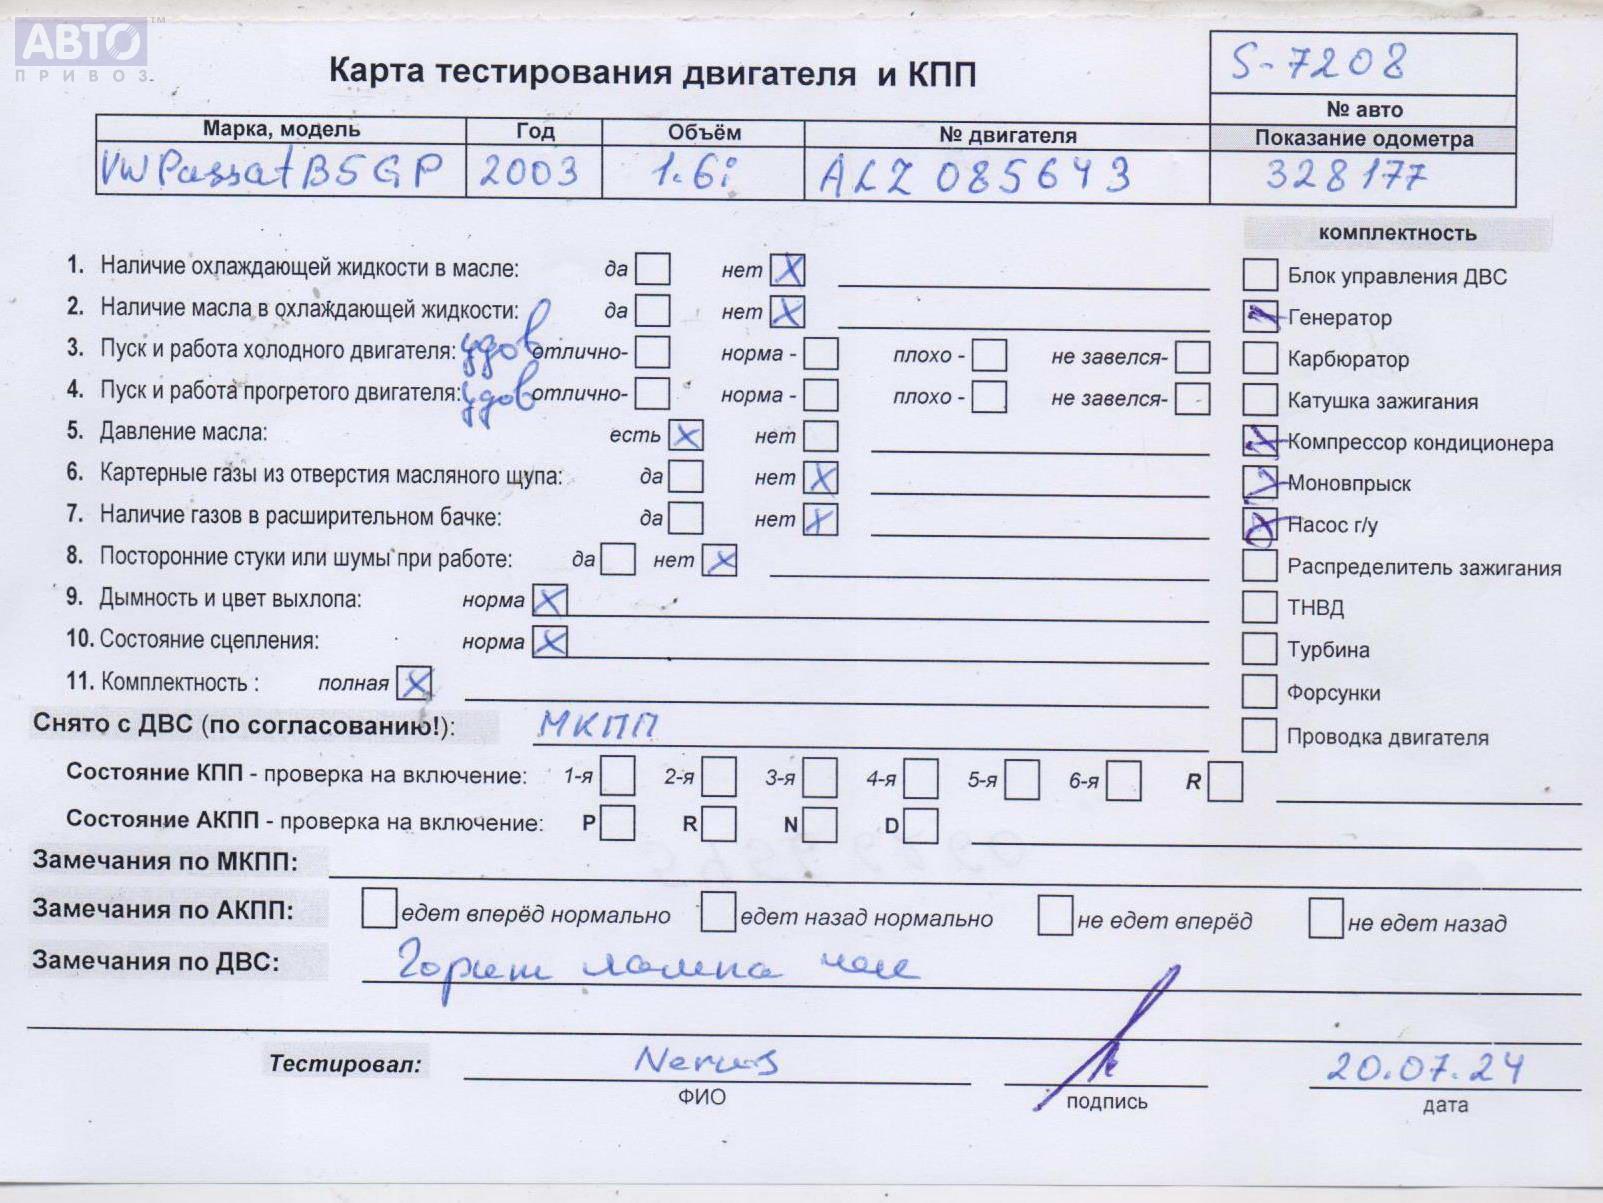 АВТО™
ПРИВОЗ
Карта тестирования двигателя и КПП
S-7208
№ авто
Марка, модель Год Объём № двигателя Показание одометра
VW Passat B5GP 2003 1.6i ALZ 085643 328177
комплектность
1. Наличие охлаждающей жидкости в масле: да нет X
Блок управления ДВС
2. Наличие масла в охлаждающей жидкости: да нет X
Генератор
3. Пуск и работа холодного двигателя: удов отлично- норма - плохо - не завелся-
Карбюратор
4. Пуск и работа прогретого двигателя: удов отлично- норма - плохо - не завелся-
Катушка зажигания
5. Давление масла: есть X нет
Компрессор кондиционера
6. Картерные газы из отверстия масляного щупа: да нет X
Моновпрыск
7. Наличие газов в расширительном бачке: да нет X
Насос г/у
8. Посторонние стуки или шумы при работе: да нет X
Распределитель зажигания
9. Дымность и цвет выхлопа: норма X
ТНВД
10. Состояние сцепления: норма X
Турбина
11. Комплектность : полная X
Форсунки
Снято с ДВС (по согласованию!): МКПП
Проводка двигателя
Состояние КПП - проверка на включение: 1-я 2-я 3-я 4-я 5-я 6-я R
Состояние АКПП - проверка на включение: P R N D
Замечания по МКПП:
Замечания по АКПП: едет вперёд нормально едет назад нормально не едет вперёд не едет назад
Замечания по ДВС: Горит лампа чек
Тестировал: 20.07.24
ФИО подпись дата